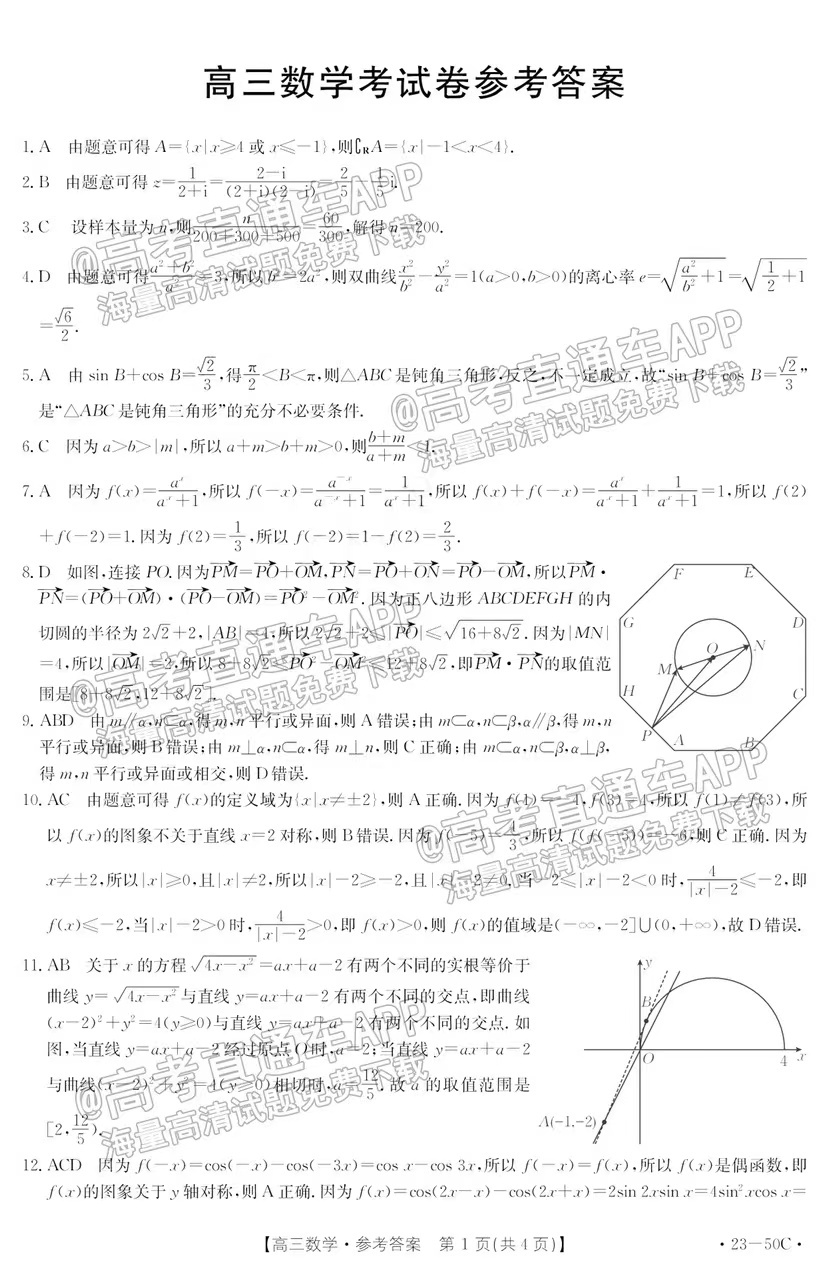 高三数学考试卷参考答案
1. A 由题意可得 A={x|x≥4 或 x≤−1},则∁RA={x|−1<x<4}.
2. B 由题意可得 z=1/(2+i)=(2−i)/((2+i)(2−i))=2/5−1/5i.
3. C 设样本量为 n,则n/(200+300+500)=60/300,解得 n=200.
4. D 由题意可得(a²+b²)/a²=3,所以 b²=2a²,则双曲线x²/b²−y²/a²=1(a>0,b>0)的离心率 e=√(a²/b²+1)=√(1/2+1)
=√6/2.
5. A 由 sin B+cos B=√2/3,得π/2<B<π,则△ABC 是钝角三角形,反之,不一定成立,故“sin B+cos B=√2/3”
是“△ABC 是钝角三角形”的充分不必要条件.
6. C 因为 a>b>|m|,所以 a+m>b+m>0,则(b+m)/(a+m)<1.
7. A 因为 f(x)=aˣ/(aˣ+1),所以 f(−x)=a⁻ˣ/(a⁻ˣ+1)=1/(aˣ+1),所以 f(x)+f(−x)=aˣ/(aˣ+1)+1/(aˣ+1)=1,所以 f(2)
+f(−2)=1.因为 f(2)=1/3,所以 f(−2)=1−f(2)=2/3.
8. D 如图,连接 PO.因为PM→=PO→+OM→,PN→=PO→+ON→=PO→−OM→,所以PM→·
PN→=(PO→+OM→)·(PO→−OM→)=PO→²−OM→².因为正八边形 ABCDEFGH 的内
切圆的半径为 2√2+2,|AB|=4,所以 2√2+2≤|PO→|≤√(16+8√2).因为|MN|
=4,所以|OM→|=2,所以 8+8√2≤PO→²−OM→²≤12+8√2,即PM→·PN→的取值范
围是[8+8√2,12+8√2].
F E
G D
O N
M
H C
P A B
9. ABD 由 m∥α,n⊂α,得 m,n 平行或异面,则 A 错误;由 m⊂α,n⊂β,α∥β,得 m,n
平行或异面,则 B 错误;由 m⊥α,n⊂α,得 m⊥n,则 C 正确;由 m⊂α,n⊂β,α⊥β,
得 m,n 平行或异面或相交,则 D 错误.
10. AC 由题意可得 f(x)的定义域为{x|x≠±2},则 A 正确.因为 f(1)=−4,f(3)=4,所以 f(1)≠f(3),所
以 f(x)的图象不关于直线 x=2 对称,则 B 错误.因为 f(−5)=4/3,所以 f(f(−5))=−6,则 C 正确.因为
x≠±2,所以|x|≥0,且|x|≠2,所以|x|−2≥−2,且|x|−2≠0.当−2≤|x|−2<0 时,4/(|x|−2)≤−2,即
f(x)≤−2,当|x|−2>0 时,4/(|x|−2)>0,即 f(x)>0,则 f(x)的值域是(−∞,−2]∪(0,+∞),故 D 错误.
11. AB 关于 x 的方程√(4x−x²)=ax+a−2 有两个不同的实根等价于
曲线 y=√(4x−x²)与直线 y=ax+a−2 有两个不同的交点,即曲线
(x−2)²+y²=4(y≥0)与直线 y=ax+a−2 有两个不同的交点.如
图,当直线 y=ax+a−2 经过原点 O 时,a=2;当直线 y=ax+a−2
与曲线(x−2)²+y²=4(y≥0)相切时,a=12/5.故 a 的取值范围是
[2,12/5).
y
B
O 4 x
A(-1,-2)
12. ACD 因为 f(−x)=cos(−x)−cos(−3x)=cos x−cos 3x,所以 f(−x)=f(x),所以 f(x)是偶函数,即
f(x)的图象关于 y 轴对称,则 A 正确.因为 f(x)=cos(2x−x)−cos(2x+x)=2sin 2xsin x=4sin²xcos x=
【高三数学·参考答案 第 1 页(共 4 页)】
·23−50C·
@高考直通车APP
海量高清试题免费下载
@高考直通车APP
海量高清试题免费下载
@高考直通车APP
海量高清试题免费下载
@高考直通车APP
海量高清试题免费下载
@高考直通车APP
海量高清试题免费下载